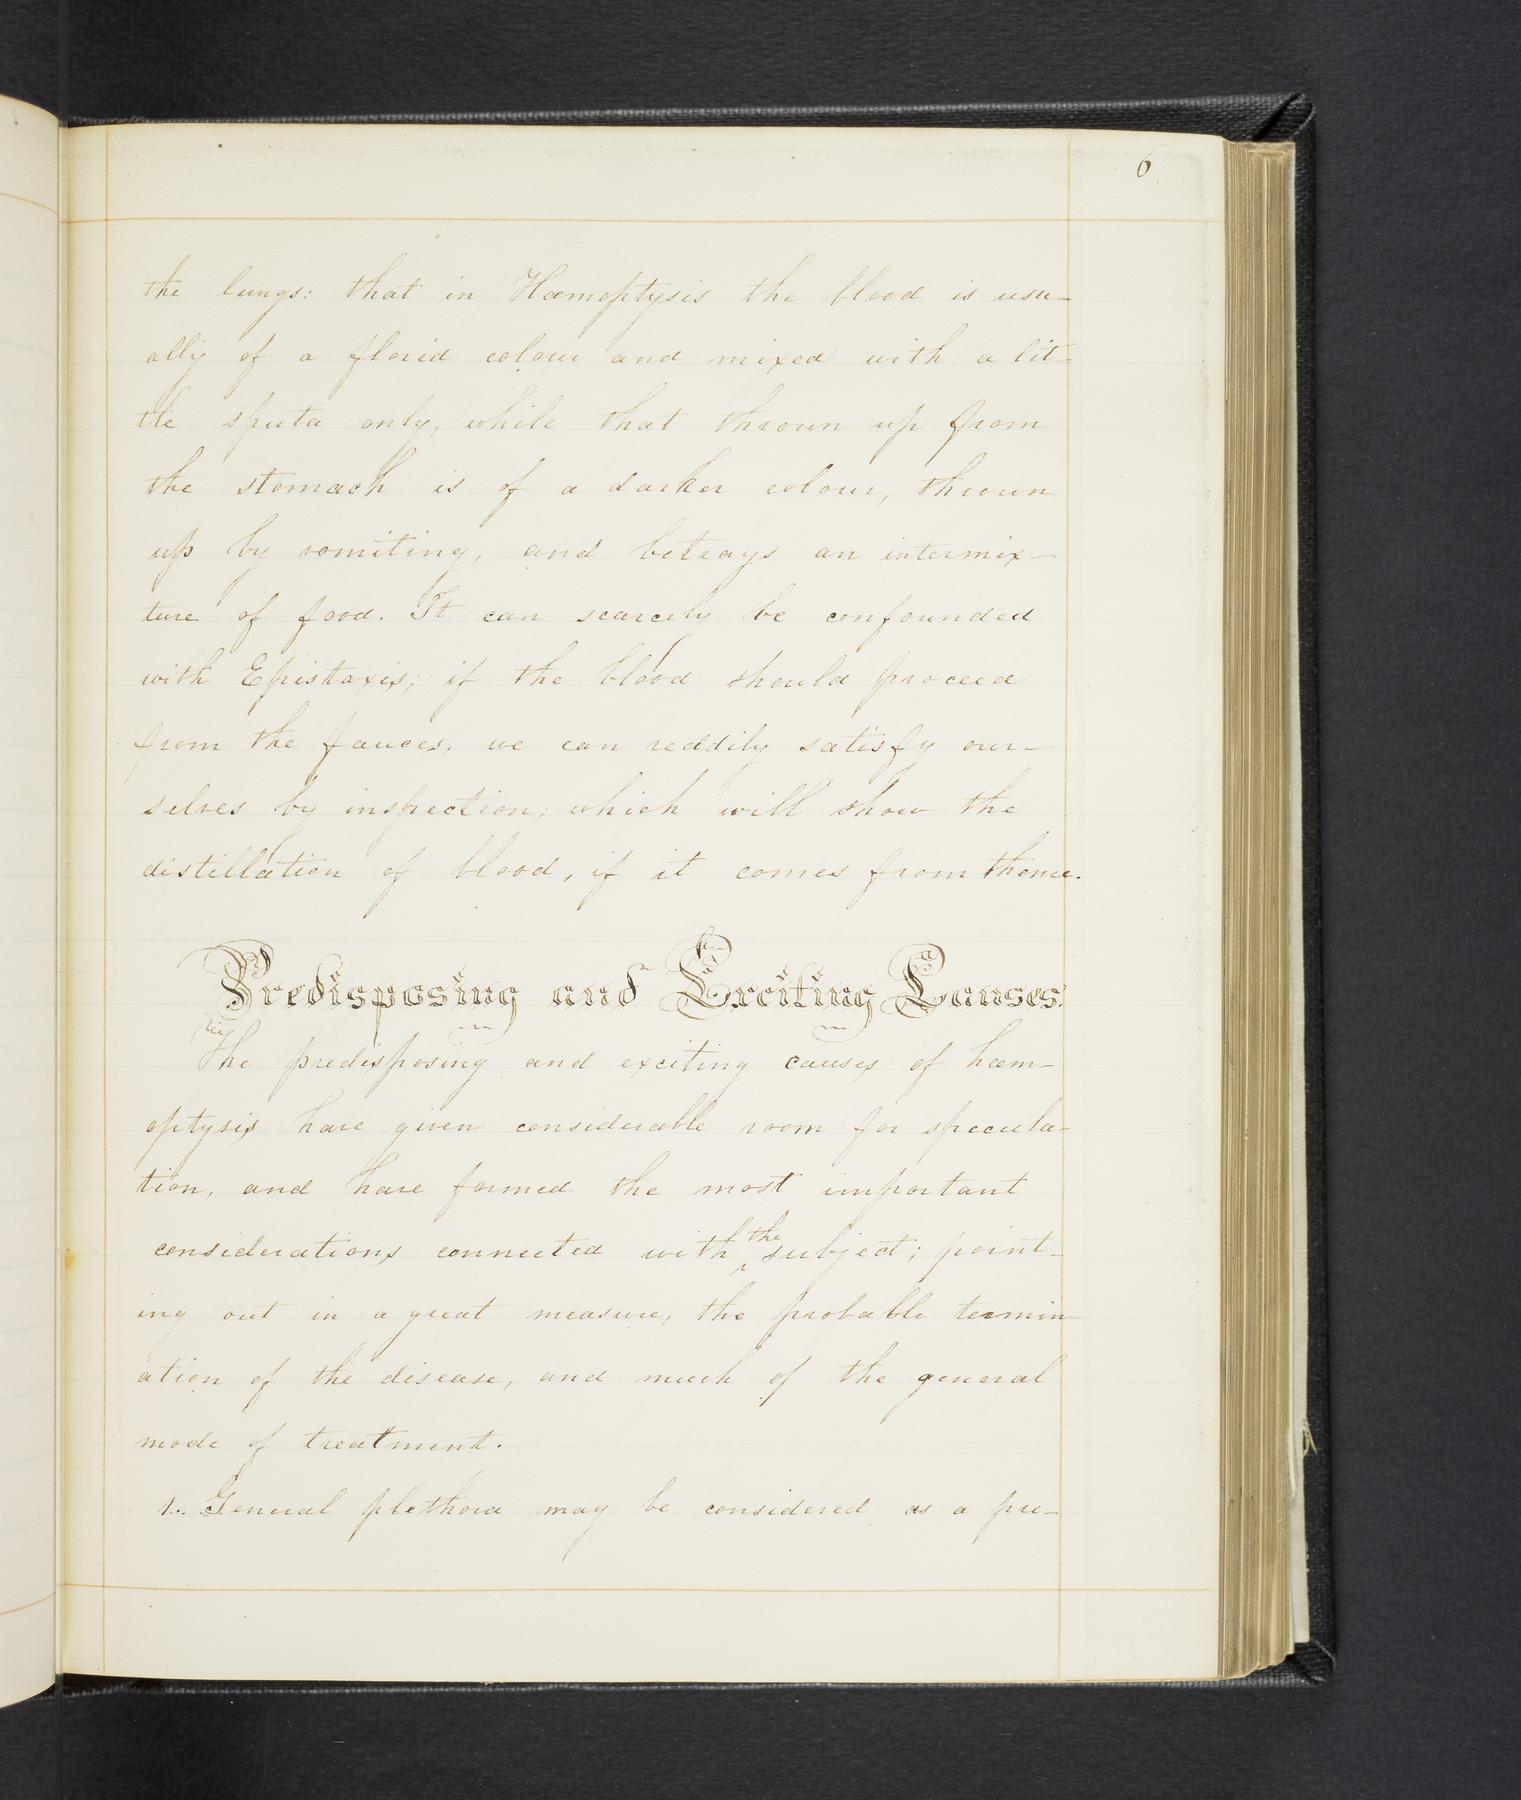 6
the lungs: that in Hæmoptysis the blood is usu-
ally of a florid colour and mixed with a lit-
tle sputa only, while that thrown up from
the stomach is of a darker colour, thrown
up by vomiting, and betrays an intermix-
ture of food. It can scarcely be confounded
with Epistaxis; if the blood should proceed
from the fauces, we can reddily satisfy our-
selves by inspection; which will show the
distillation of blood, if it comes from thence.
Predisposing and Exciting Causes.
The predisposing and exciting causes of hæm-
optysis have given considerable room for specula-
tion, and have formed the most important
considerations connected with the subject; point-
ing out in a great measure, the probable termin-
ation of the disease, and much of the general
mode of treatment.
1. General plethora may be considered as a pre-